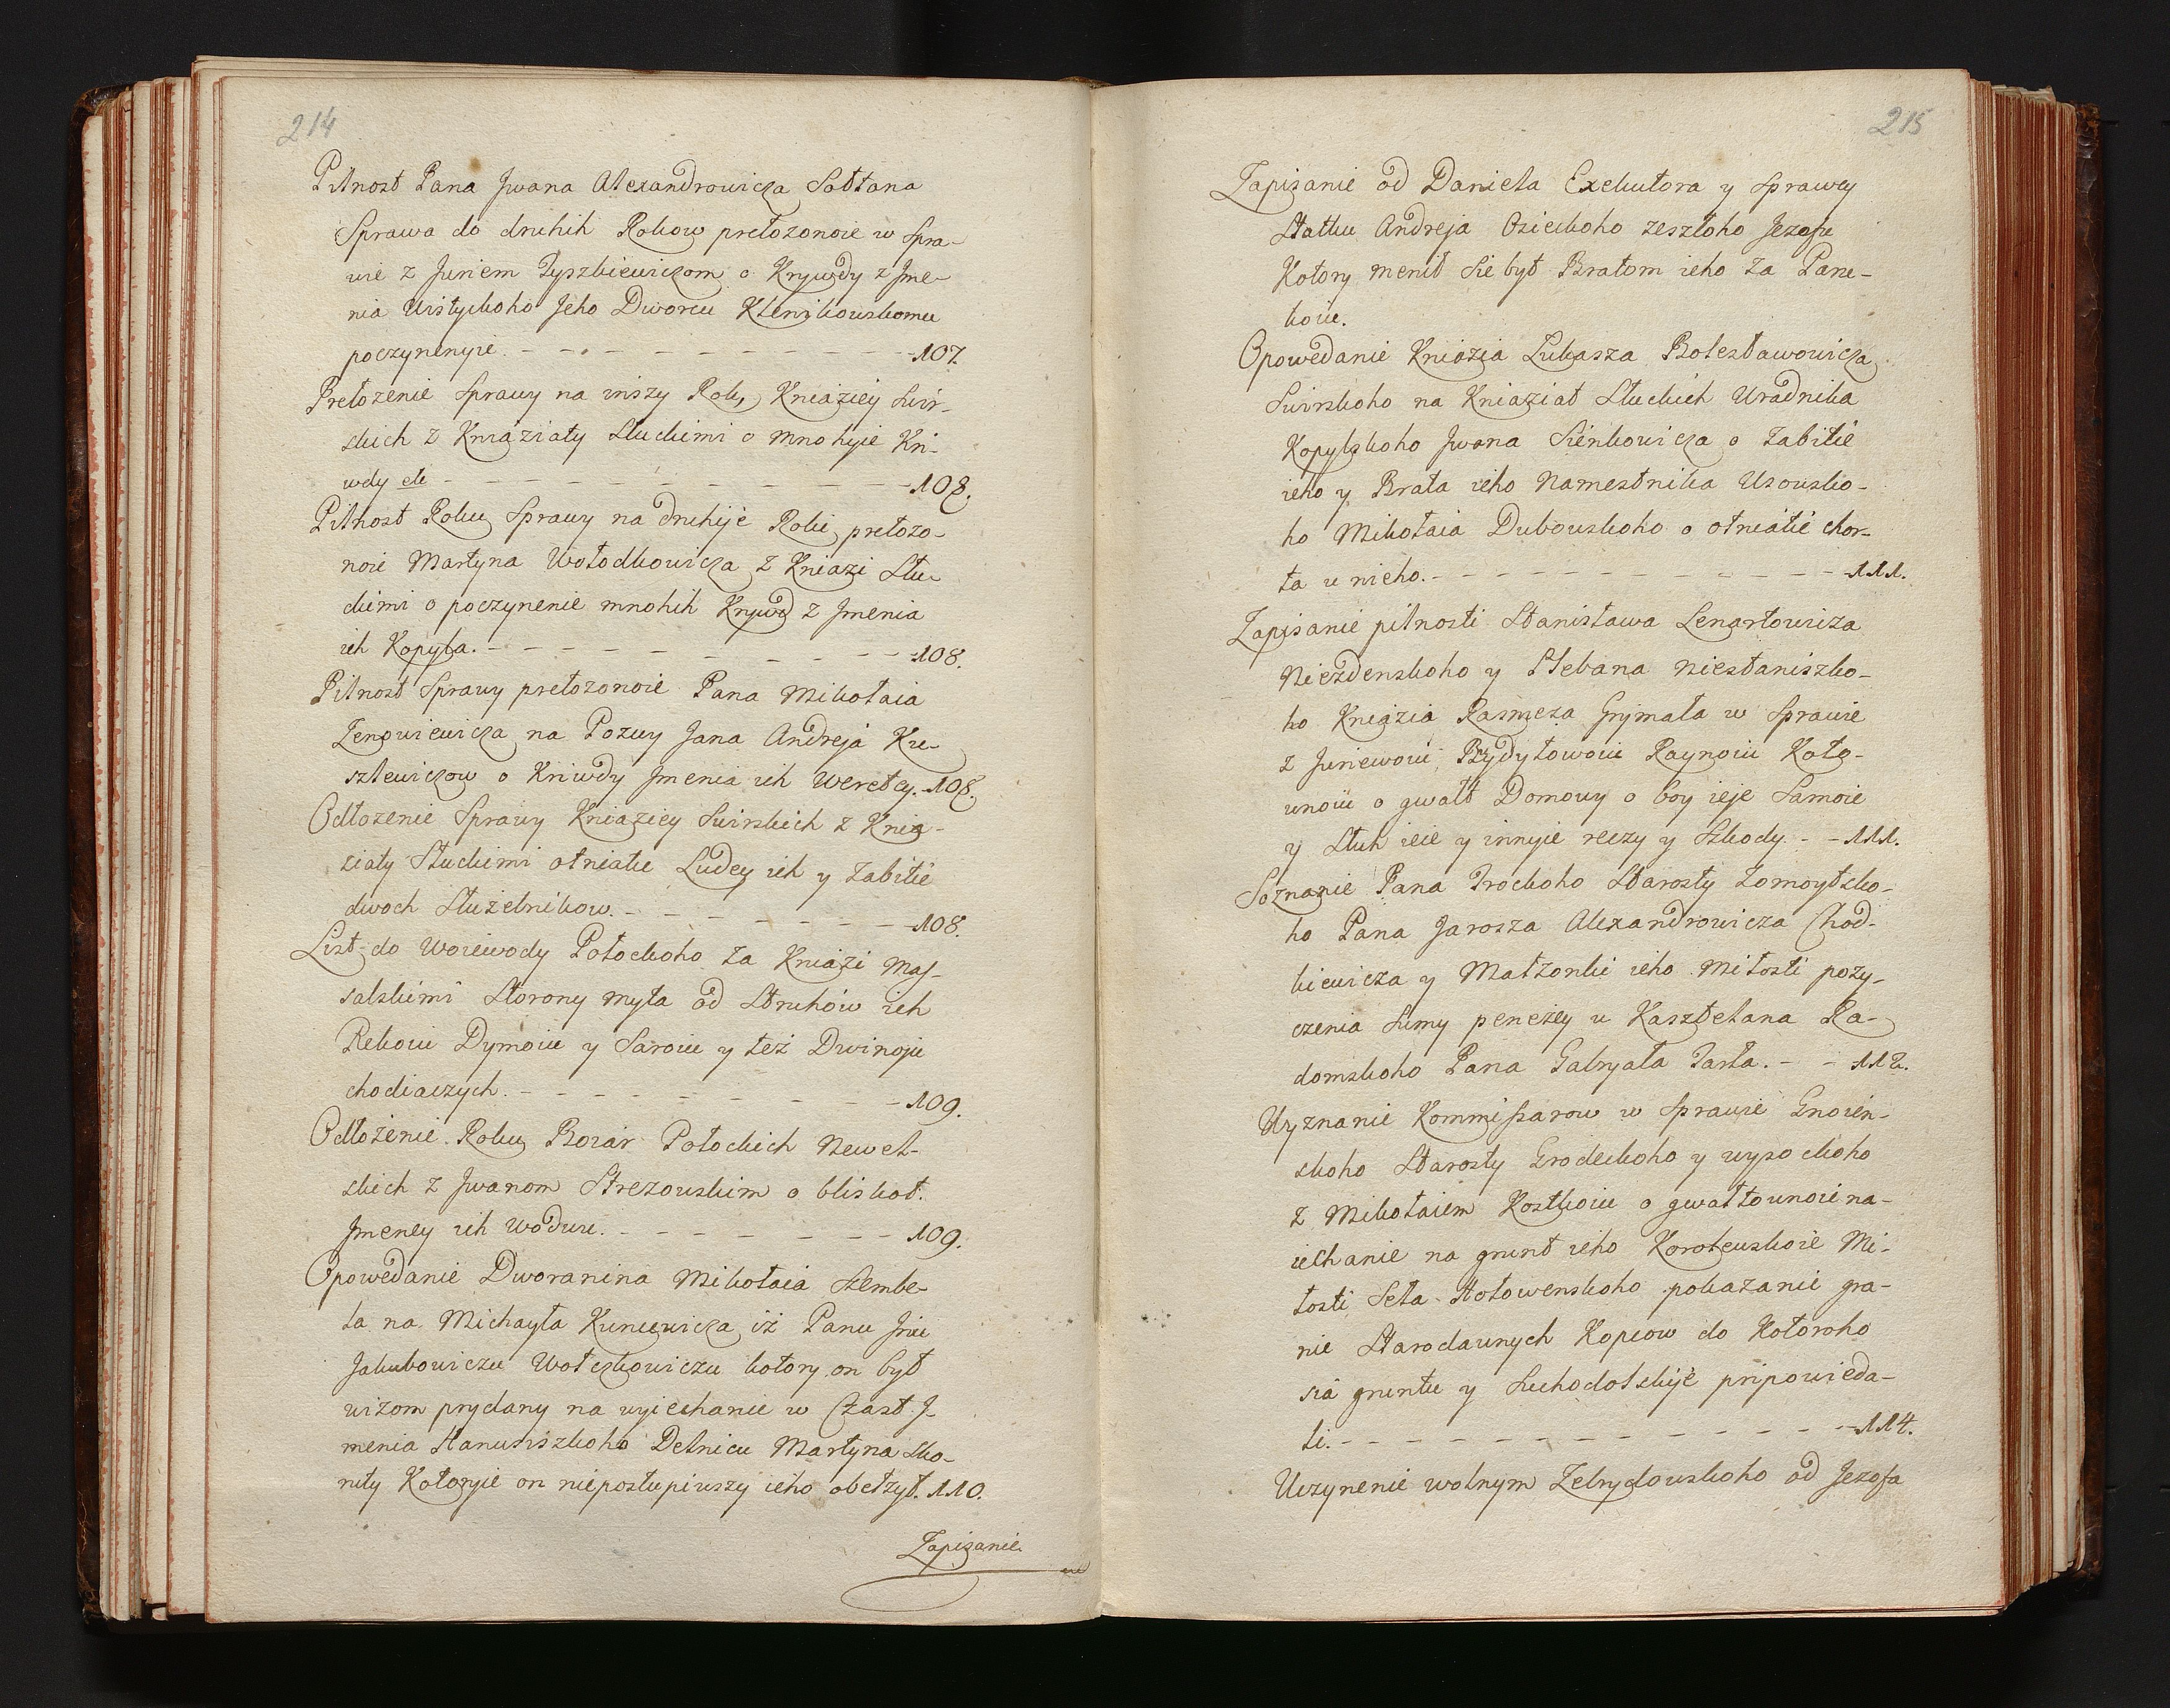 214
Pilnost Pana Jwana Alexandrowicza Sołtana
Sprawa do druhih Rokow prełozonoie w Spra-
wie z Juriem Tyszkiewiczom o Krywdy z Jme-
nia Uistyckoho Jeho Dworcu Klenikouskomu
poczynenyie. - - - - - - - - - - 107.
Prełozenie Sprawy na inszy Rok, Kniaziey Swir-
skich z Kniaziaty Słuckimi o mnohyie Kri-
wdy etc - - - - - - - - - - 108.
Pilnost Roku Sprawy na druhije Roki, prełozo-
noie Martyna Wołodkowicza z Kniazi Słu-
ckimi o poczynenie mnohih Krywd z Jmenia
ich Kopyla. - - - - - - - - - 108.
Pilnost Sprawy prełozonoie Pana Mikołaia
Zenowiewicza na Pozwy Jana Andreja Ku-
szlewiczow o Kriwdy Jmenia ich Weretey. - 108.
Odłozenie Sprawy Kniaziey Swirskich z Knia-
ziaty Słuckimi otniatie Ludey ich y Zabitie
dwoch Służelnikow. - - - - - - - 108.
List do Woiewody Połockoho za Kniazi Mas-
salskimi Storony myta od Struhów ich
Rekoiu Dymoiu y Saroiu y też Dwinoju
chodiaczych. - - - - - - - - - 109.
Odłożenie Roku Boiar Połockich Newel-
skich z Jwanom Strezouskim o bliskost.
Jmeney ich Woduu. - - - - - - - 109.
Opowedanie Dworanina Mikołaia Szembe-
la na Michayła Kuncewicza iż Panu Jriu
Jakubowiczu Wołczkowiczu kotory on był
wizom prydany na uyiechanie w Czast J-
menia Hanusiszkoho Delnicu Martyna Sko-
ruty Kotoryie on niepostupiwszy ieho obelzył. 110.
Zapisanie
215
Zapisanie od Daniela Exekutora y Sprawcy
Statku Andreja Osieckoho zeszłoho Jezofu
Kotory menił Sie był Bratom ieho Za Pane-
koiu.
Opowedanie Kniazia Lukasza Bolesławowicza
Swirskoho na Kniaziat Słuckich Uradnika
Kopylskoho Jwana Sieńkowicza o Zabitie
ieho y Brata ieho Namestnika Usousko-
ho Mikołaia Dubouskoho o otniatie chor-
ta u nieho. - - - - - - - - - - 111.
Zapisanie pilnosti Stanisława Lenartowicza
Niezdenskoho y Plebana Niestaniszko-
ho Kniazia Rasmeza Grymała w Sprawie
z Juriewoiu, Brydytowoiu Raynoiu Koło-
unoiu o gwałt Domowy o boy ieje Samoie
y Słuh ieie y innyie reczy y Szkody. - - 111.
Soznanie Pana Trockoho Starosty Zomoytsko-
ho Pana Jarosza Alexandrowicza Chod-
kiewicza y Małzonki ieho Miłosti pozy-
czenia Sumy penezey u Kasztelana Ra-
domskoho Pana Gabryała Tarła. - - 112.
Uyznanie Kommissarow w Sprawie Gnoien-
skoho Starosty Grodeckoho y wysockoho
z Mikołaiem Kostkoiu o gwałtownoie na-
iechanie na grunt ieho Koroteuskoie Mi-
łosti Sela Hołowenskoho pokazanie gra-
nic Starodaunych Kopcow do Kotoroho
sia gruntu y Suchodolskije pripowieda-
li. - - - - - - - - - - - - - - 114.
Uczynenie wolnym Zebrydouskoho od Jezofa